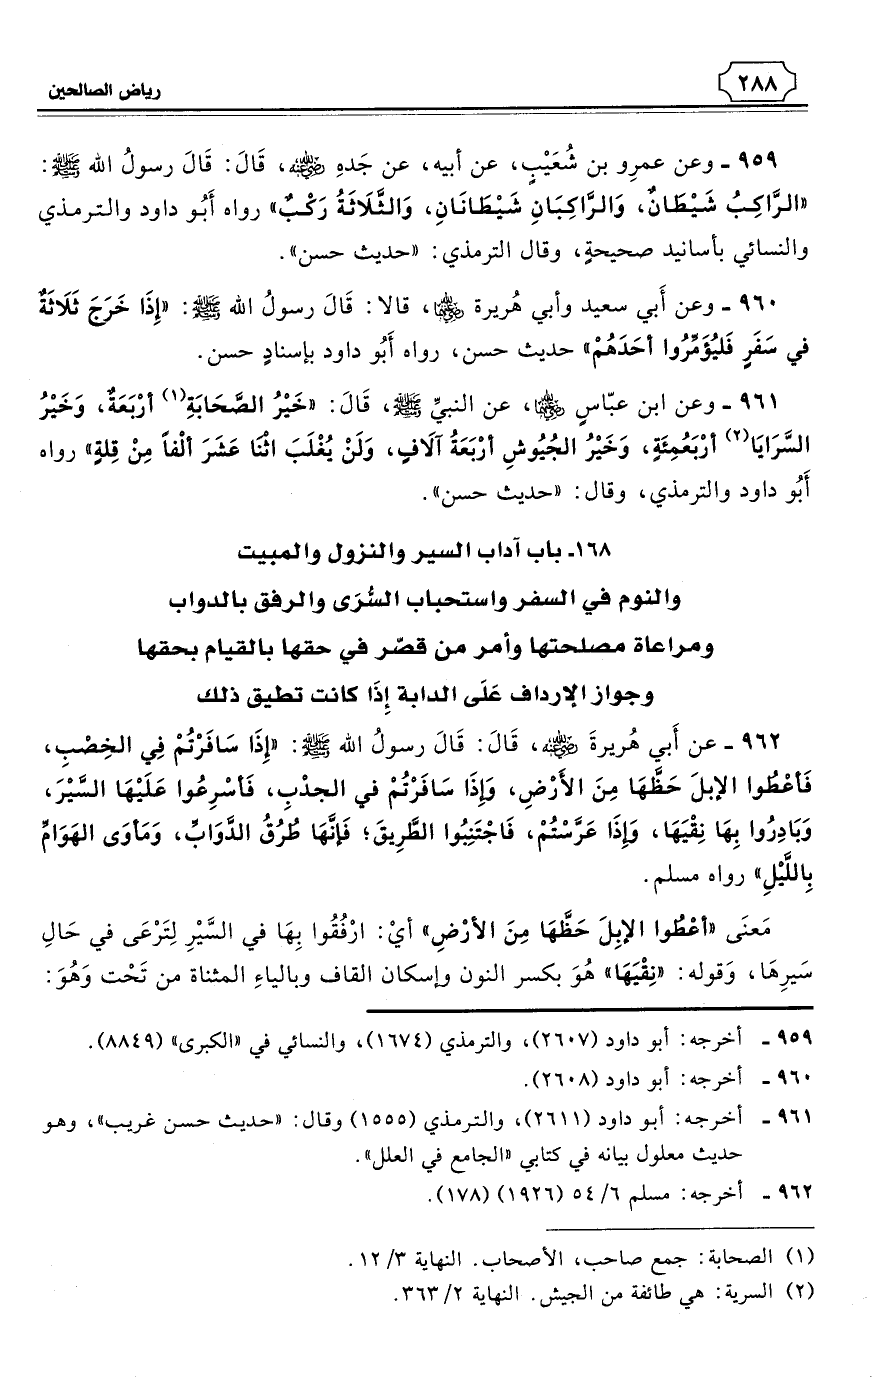 ٢٨٨
رياض الصالحين
٩٥٩ ـ وعن عمرِو بن شُعَيْبٍ، عن أبيه، عن جَدهِ رضي الله عنه، قَالَ: قَالَ رسولُ الله ﷺ:
«الرَّاكِبُ شَيْطَانٌ، وَالرَّاكِبَانِ شَيْطَانَانِ، وَالثَّلَاثَةُ رَكْبٌ» رواه أَبُو داود والترمذي
والنسائي بأسانيد صحيحةٍ، وقال الترمذي: «حديث حسن».
٩٦٠ ـ وعن أَبي سعيد وأَبي هُريرة رضي الله عنهما، قالا: قَالَ رسولُ الله ﷺ: «إِذَا خَرَجَ ثَلَاثَةٌ
في سَفَرٍ فَليُؤَمِّرُوا أحَدَهُمْ» حديث حسن، رواه أَبُو داود بإسنادٍ حسن.
٩٦١ ـ وعن ابن عبّاسٍ رضي الله عنهما، عن النبيِّ ﷺ، قَالَ: «خَيْرُ الصَّحَابَةِ(١) أرْبَعَةٌ، وَخَيْرُ
السَّرَايَا(٢) أرْبَعُمِئَةٍ، وَخَيْرُ الجُيُوشِ أرْبَعَةُ آلَافٍ، وَلَنْ يُغْلَبَ اثْنَا عَشَرَ ألْفاً مِنْ قِلةٍ» رواه
أَبُو داود والترمذي، وقال: «حديث حسن».
١٦٨ـ باب آداب السير والنزول والمبيت
والنوم في السفر واستحباب السُّرَى والرفق بالدواب
ومراعاة مصلحتها وأمر من قصّر في حقها بالقيام بحقها
وجواز الإرداف عَلَى الدابة إِذَا كانت تطيق ذلك
٩٦٢ ـ عن أَبي هُريرةَ رضي الله عنه، قَالَ: قَالَ رسولُ الله ﷺ: «إِذَا سَافَرْتُمْ فِي الخِصْبِ،
فَأعْطُوا الإبلَ حَظَّهَا مِنَ الأَرْضِ، وَإِذَا سَافَرْتُمْ في الجدْبِ، فَأسْرِعُوا عَلَيْهَا السَّيْرَ،
وَبَادِرُوا بِهَا نِقْيَهَا، وَإِذَا عَرَّسْتُمْ، فَاجْتَنِبُوا الطَّرِيقَ؛ فَإنَّهَا طُرُقُ الدَّوَابِّ، وَمَأوَى الهَوَامِّ
بِاللَّيْلِ» رواه مسلم.
مَعنَى «أعْطُوا الإبِلَ حَظَّهَا مِنَ الأرْضِ» أيْ: ارْفُقُوا بِهَا في السَّيْرِ لِتَرْعَى في حَالِ
سَيرِهَا، وَقوله: «نِقْيَهَا» هُوَ بكسر النون وإسكان القاف وبالياءِ المثناة من تَحْت وَهُوَ:
٩٥٩ ـ أخرجه: أبو داود (٢٦٠٧)، والترمذي (١٦٧٤)، والنسائي في «الكبرى» (٨٨٤٩).
٩٦٠ ـ أخرجه: أبو داود (٢٦٠٨).
٩٦١ ـ أخرجه: أبو داود (٢٦١١)، والترمذي (١٥٥٥) وقال: «حديث حسن غريب»، وهو
حديث معلول بيانه في كتابي «الجامع في العلل».
٩٦٢ ـ أخرجه: مسلم ٦/ ٥٤ (١٩٢٦) (١٧٨).
(١) الصحابة: جمع صاحب، الأصحاب. النهاية ٣/ ١٢.
(٢) السرية: هي طائفة من الجيش. النهاية ٢/ ٣٦٣.